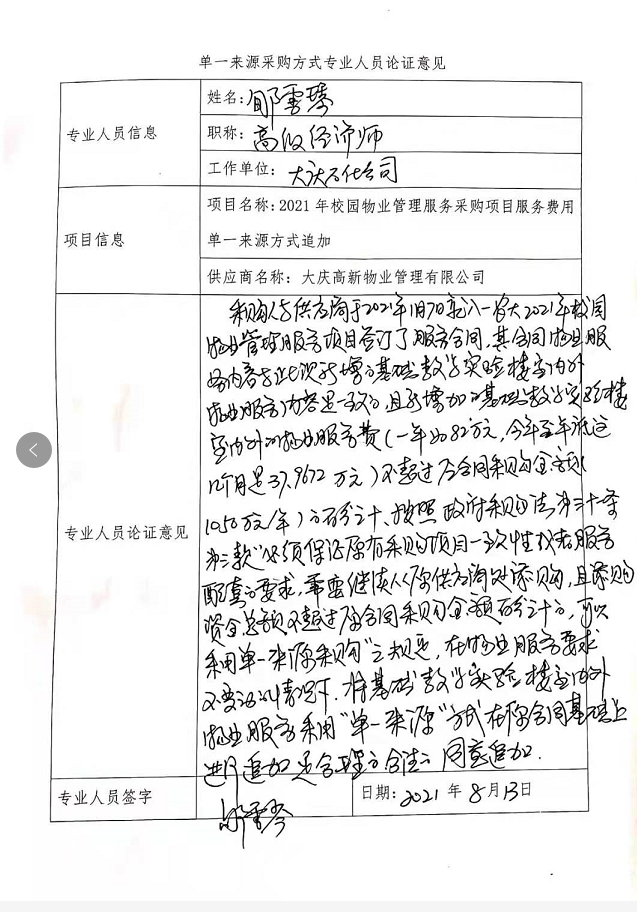 单一来源采购方式专业人员论证意见
专业人员信息
姓名:
职称: 高级经济师
工作单位: 大庆石化公司
项目信息
项目名称: 2021 年校园物业管理服务采购项目服务费用
单一来源方式追加
供应商名称: 大庆高新物业管理有限公司
专业人员论证意见
采购人与供应商于2021年1月7日就八一农大2021年校园
物业管理服务项目签订了服务合同,其合同物业服
务内容与此次新增的基础教学实验楼室内外
物业服务内容是一致的,且新增加的基础教学实验楼
室内外的物业服务费(一年为82万元,今年至年底这
个月是37.9672万元)不超过原合同采购金额(
1050万元/年)的百分之十、按照政府采购法第三十一条
第三款“必须保证原有采购项目一致性或者服务
配套的要求,需要继续从原供应商处添购,且添购
资金总额不超过原合同采购金额百分之十的,可以
采用单一来源采购”之规定,在物业服务要求
不变的情况下,将基础教学实验楼室内外
物业服务采用“单一来源”方式在原合同基础上
进行追加是合理的合法的 同意追加.
专业人员签字
日期: 2021 年 8 月 13 日